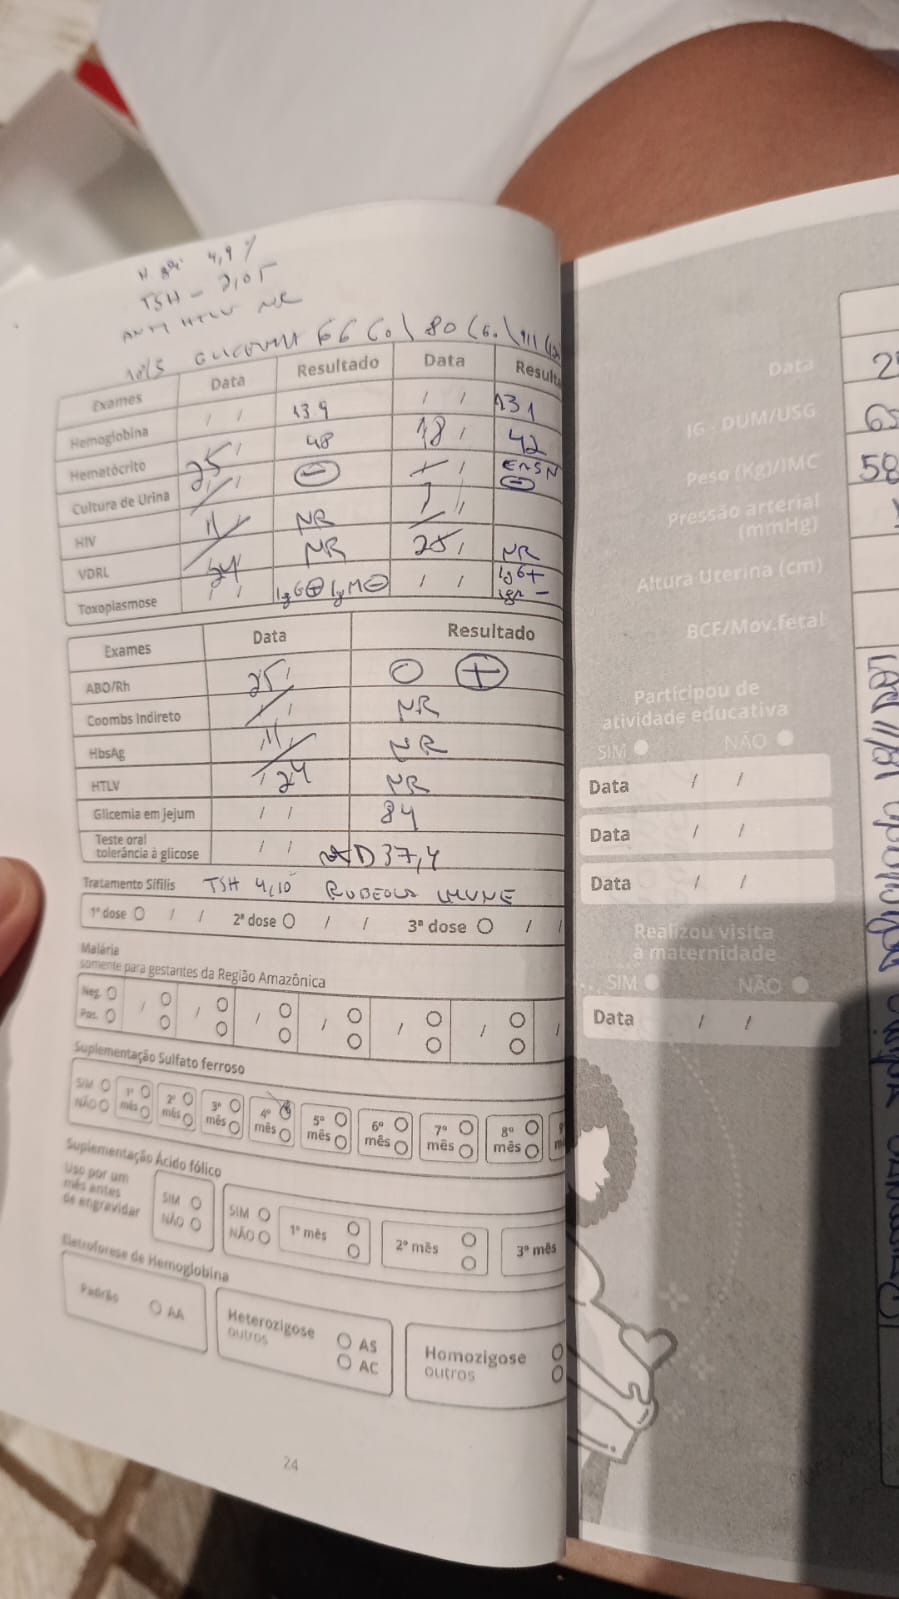 4,9 %
TSH - 2,05
ANTI HTLV NR
GLICEMIA 66 80 111
Exames Data Resultado Data Result
Hemoglobina / / 13 9 / / 131
Hematócrito 48 18 42
Cultura de Urina 25 -
HIV 11 NR
VDRL NR 25 NR
Toxoplasmose 24 IgG + IgM - / / IgG+
Exames Data Resultado
ABO/Rh 25 O +
Coombs Indireto NR
HbsAg 11 NR
HTLV 24 NR
Glicemia em jejum / / 84
Teste oral
tolerância à glicose / / 37,4
Tratamento Sífilis TSH 4,10 RUBEOLA IMUNE
1ª dose / / 2ª dose / / 3ª dose / /
Malária
somente para gestantes da Região Amazônica
Neg.
Pos.
Suplementação Sulfato ferroso
SIM
NÃO
1º mês 2º mês 3º mês 4º mês 5º mês 6º mês 7º mês 8º mês
Suplementação Ácido fólico
Uso por um
mês antes
de engravidar
SIM
NÃO
SIM
NÃO
1º mês 2º mês 3º mês
Eletroforese de Hemoglobina
Padrão AA
Heterozigose
outros
AS
AC
Homozigose
outros
24
Data
IG - DUM/USG
Peso (Kg)/IMC 58
Pressão arterial
(mmHg)
Altura Uterina (cm)
BCF/Mov.fetal
Participou de
atividade educativa
SIM NÃO
Data / /
Data / /
Data / /
Realizou visita
à maternidade
SIM NÃO
Data / /